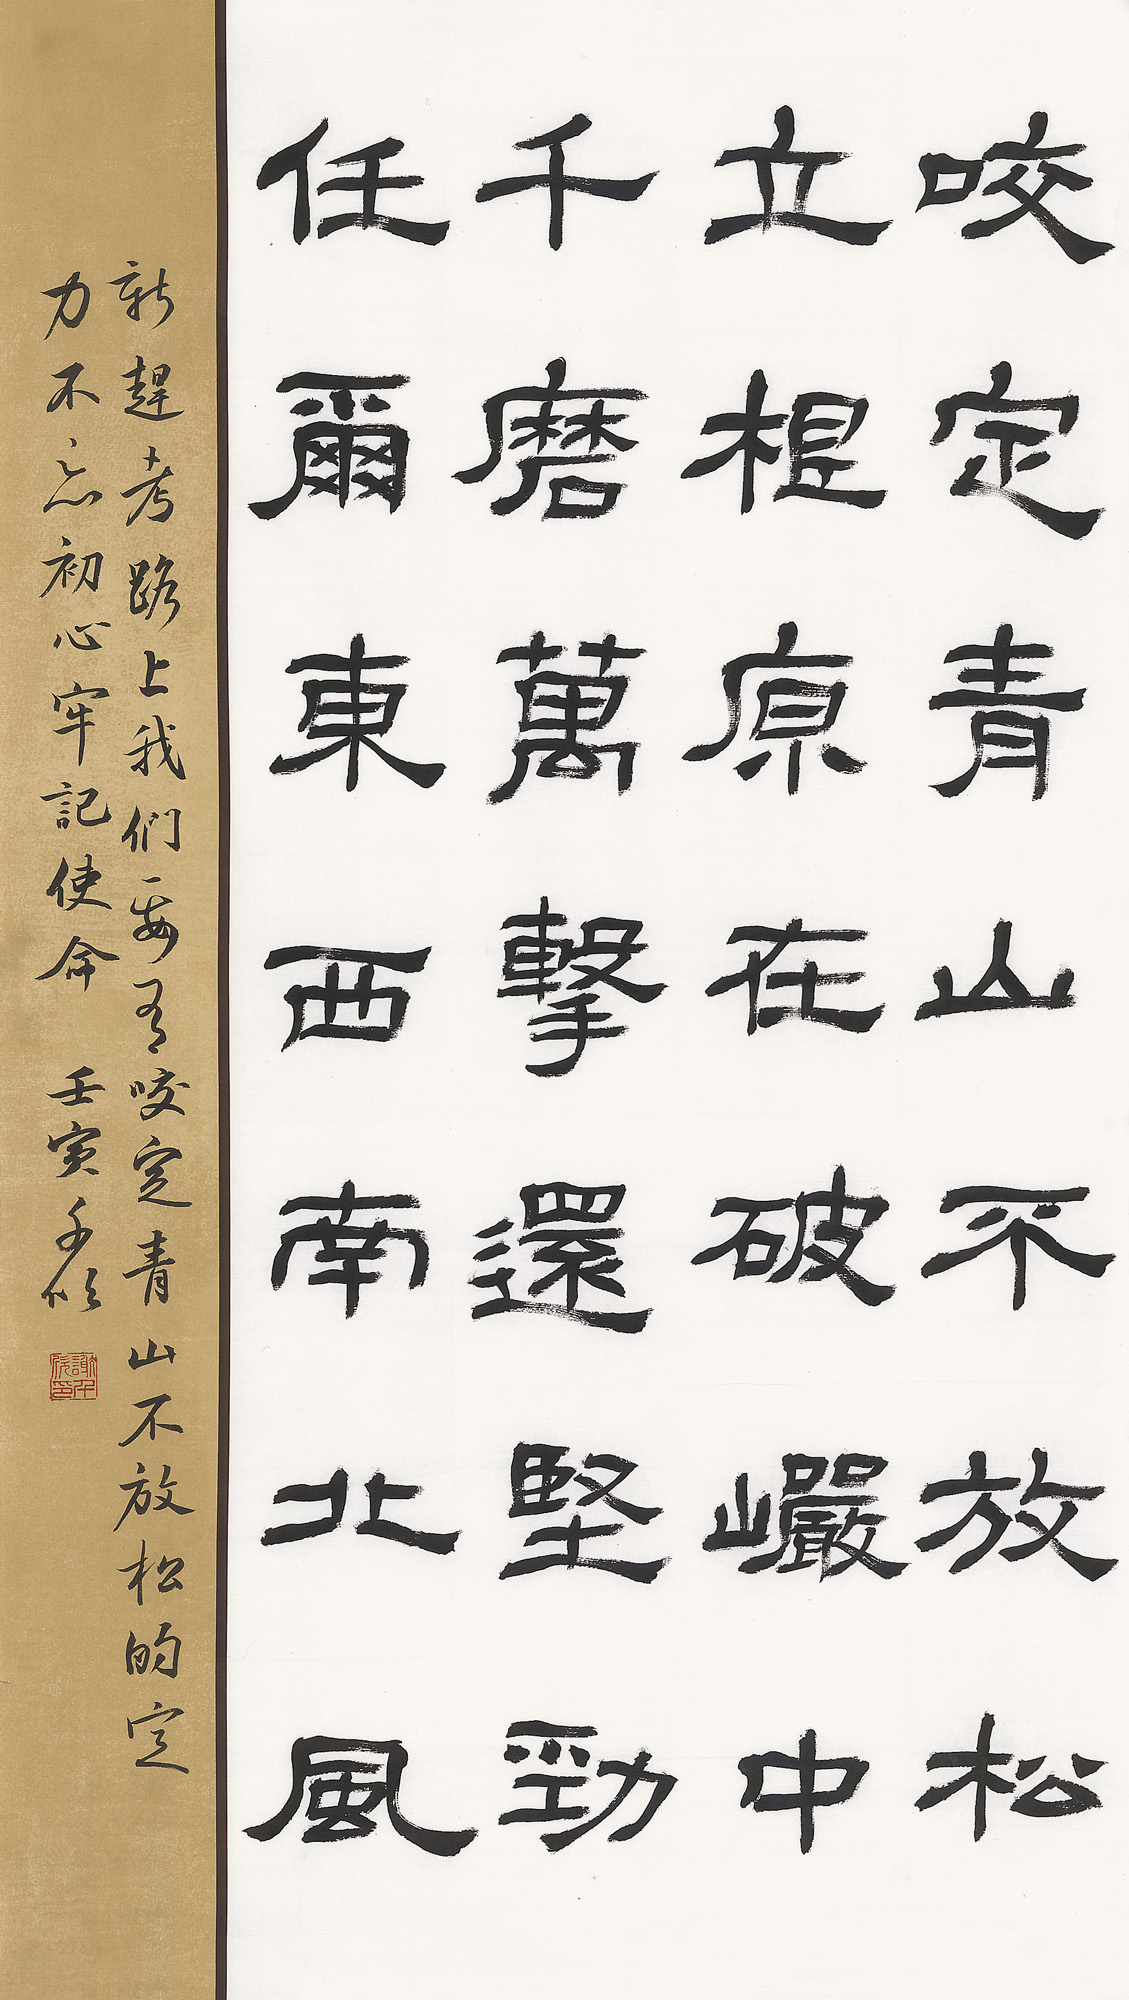 咬定青山不放松
立根原在破巗中
千磨萬擊還堅勁
任爾東西南北風
新趕考路上我們要有咬定青山不放松的定
力不忘初心牢記使命 壬寅